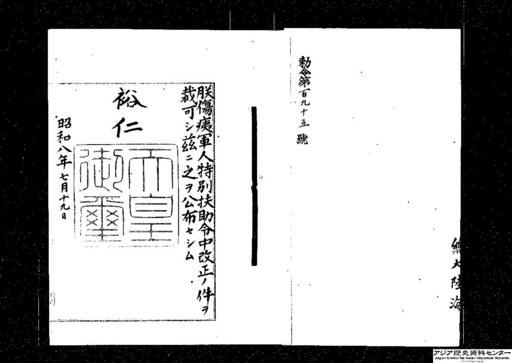 勅令第百九十五號
總 大 陸 海
朕傷痍軍人特別扶助令中改正ノ件ヲ
裁可シ茲ニ之ヲ公布セシム
裕仁
天皇御璽
昭和八年七月十九日
アジア歴史資料センター
Japan Center for Asian Historical Records